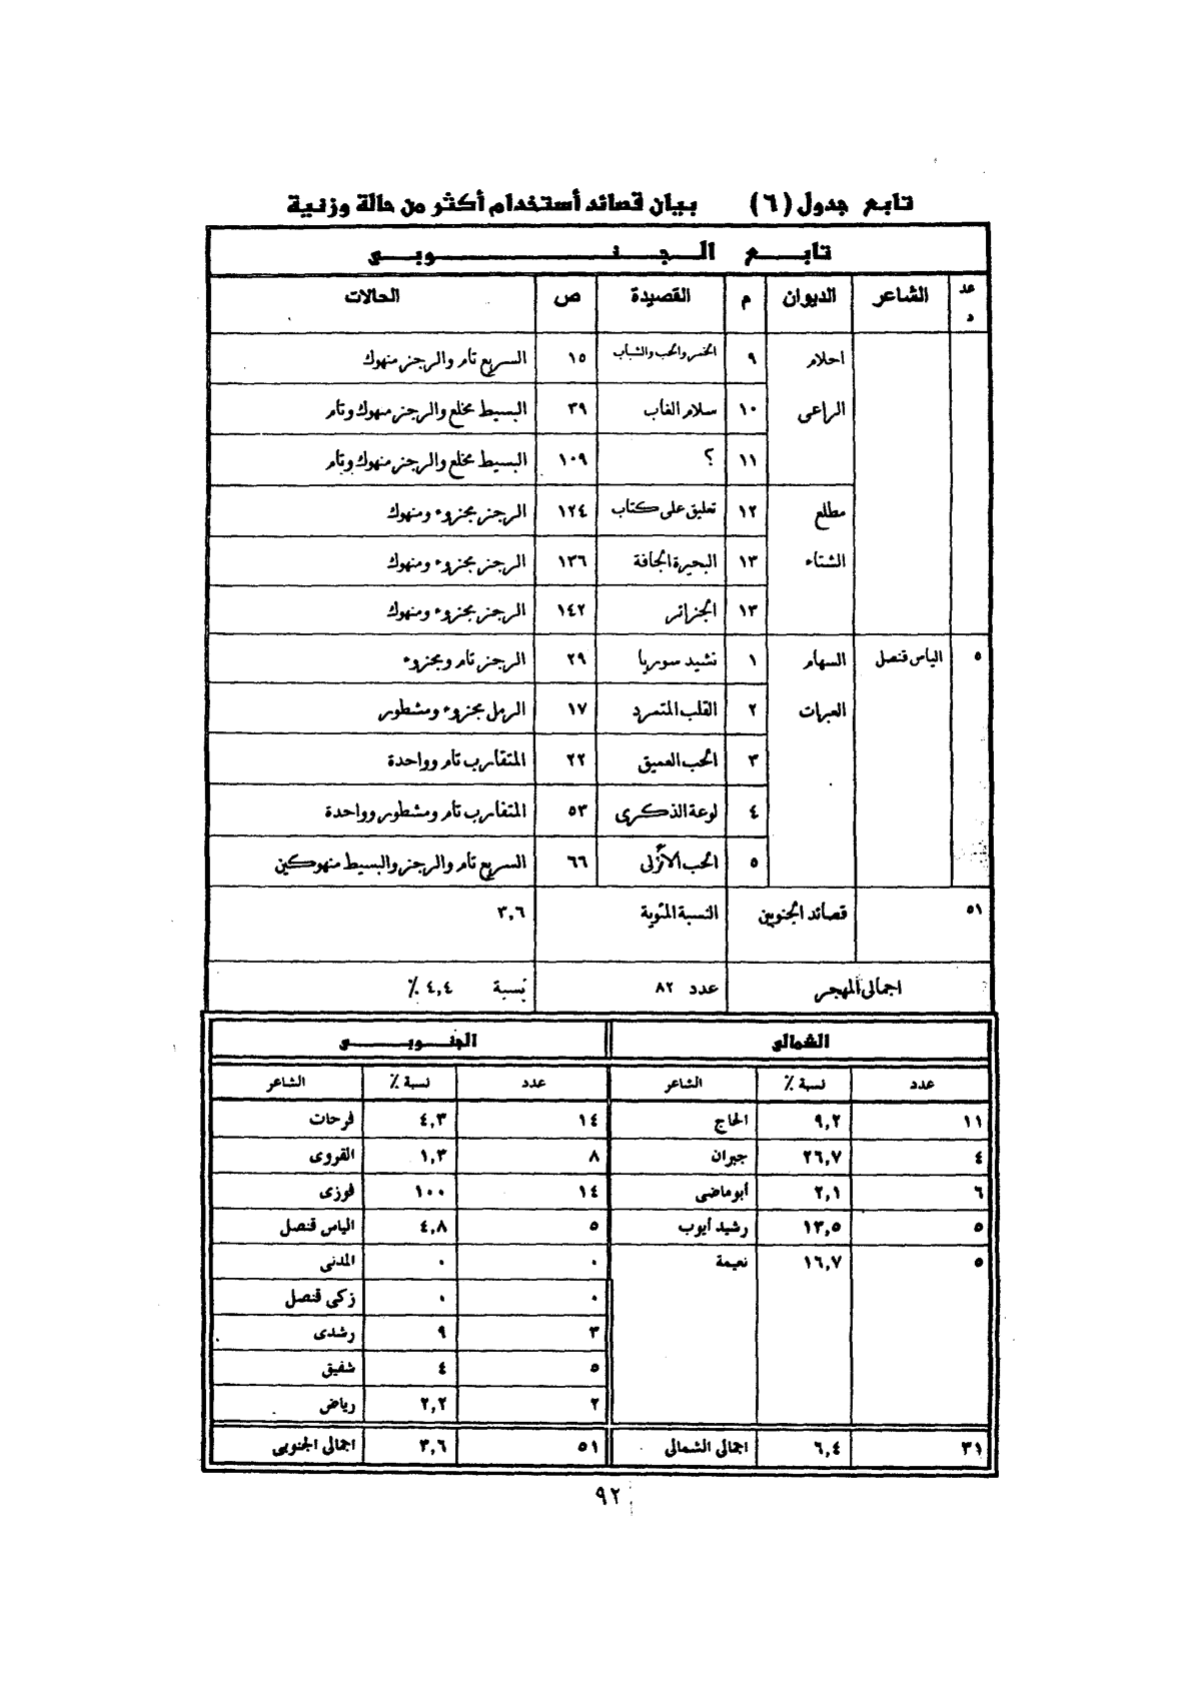 تابع جدول (٦) بيان قصائد أستخدام أكثر من حالة وزنية
تابع الجنوبى
عدد الشاعر الديوان م القصيدة ص الحالات
احلام ٩ الخمر والحب والشباب ١٥ السريع تام والرجز منهوك
الراعى ١٠ سلام الغاب ٣٩ البسيط مخلع والرجز منهوك وتام
١١ ؟ ١٠٩ البسيط مخلع والرجز منهوك وتام
مطلع ١٢ تعليق على كتاب ١٢٤ الرجز مجزوء ومنهوك
الشتاء ١٣ البحيرة الجافة ١٣٦ الرجز مجزوء ومنهوك
١٣ الجزائر ١٤٢ الرجز مجزوء ومنهوك
٥ الياس قنصل السهام ١ نشيد سوريا ٢٩ الرجز تام ومجزوء
العبرات ٢ القلب المتمرد ١٧ الرمل مجزوء ومشطور
٣ الحب العميق ٢٢ المتقارب تام وواحدة
٤ لوعة الذكرى ٥٣ المتقارب تام ومشطور وواحدة
٥ الحب الأزلى ٦٦ السريع تام والرجز والبسيط منهوكين
٥١ قصائد الجنوبين النسبة المئوية ٣,٦
اجمالى المهجر عدد ٨٢ نسبة ٤,٤ ٪
الشمالى الجنوبى
عدد نسبة ٪ الشاعر عدد نسبة ٪ الشاعر
١١ ٩,٢ الحاج ١٤ ٤,٣ فرحات
٤ ٢٦,٧ جبران ٨ ١,٣ القروى
٦ ٢,١ أبوماضى ١٤ ١٠٠ فوزى
٥ ١٣,٥ رشيد أيوب ٥ ٤,٨ الياس قنصل
٥ ١٦,٧ نعيمة ٠ ٠ المدنى
٠ ٠ زكى قنصل
٣ ٩ رشدى
٥ ٤ شفيق
٢ ٢,٢ رياض
٣١ ٦,٤ اجمالى الشمالى ٥١ ٣,٦ اجمالى الجنوبى
٩٢